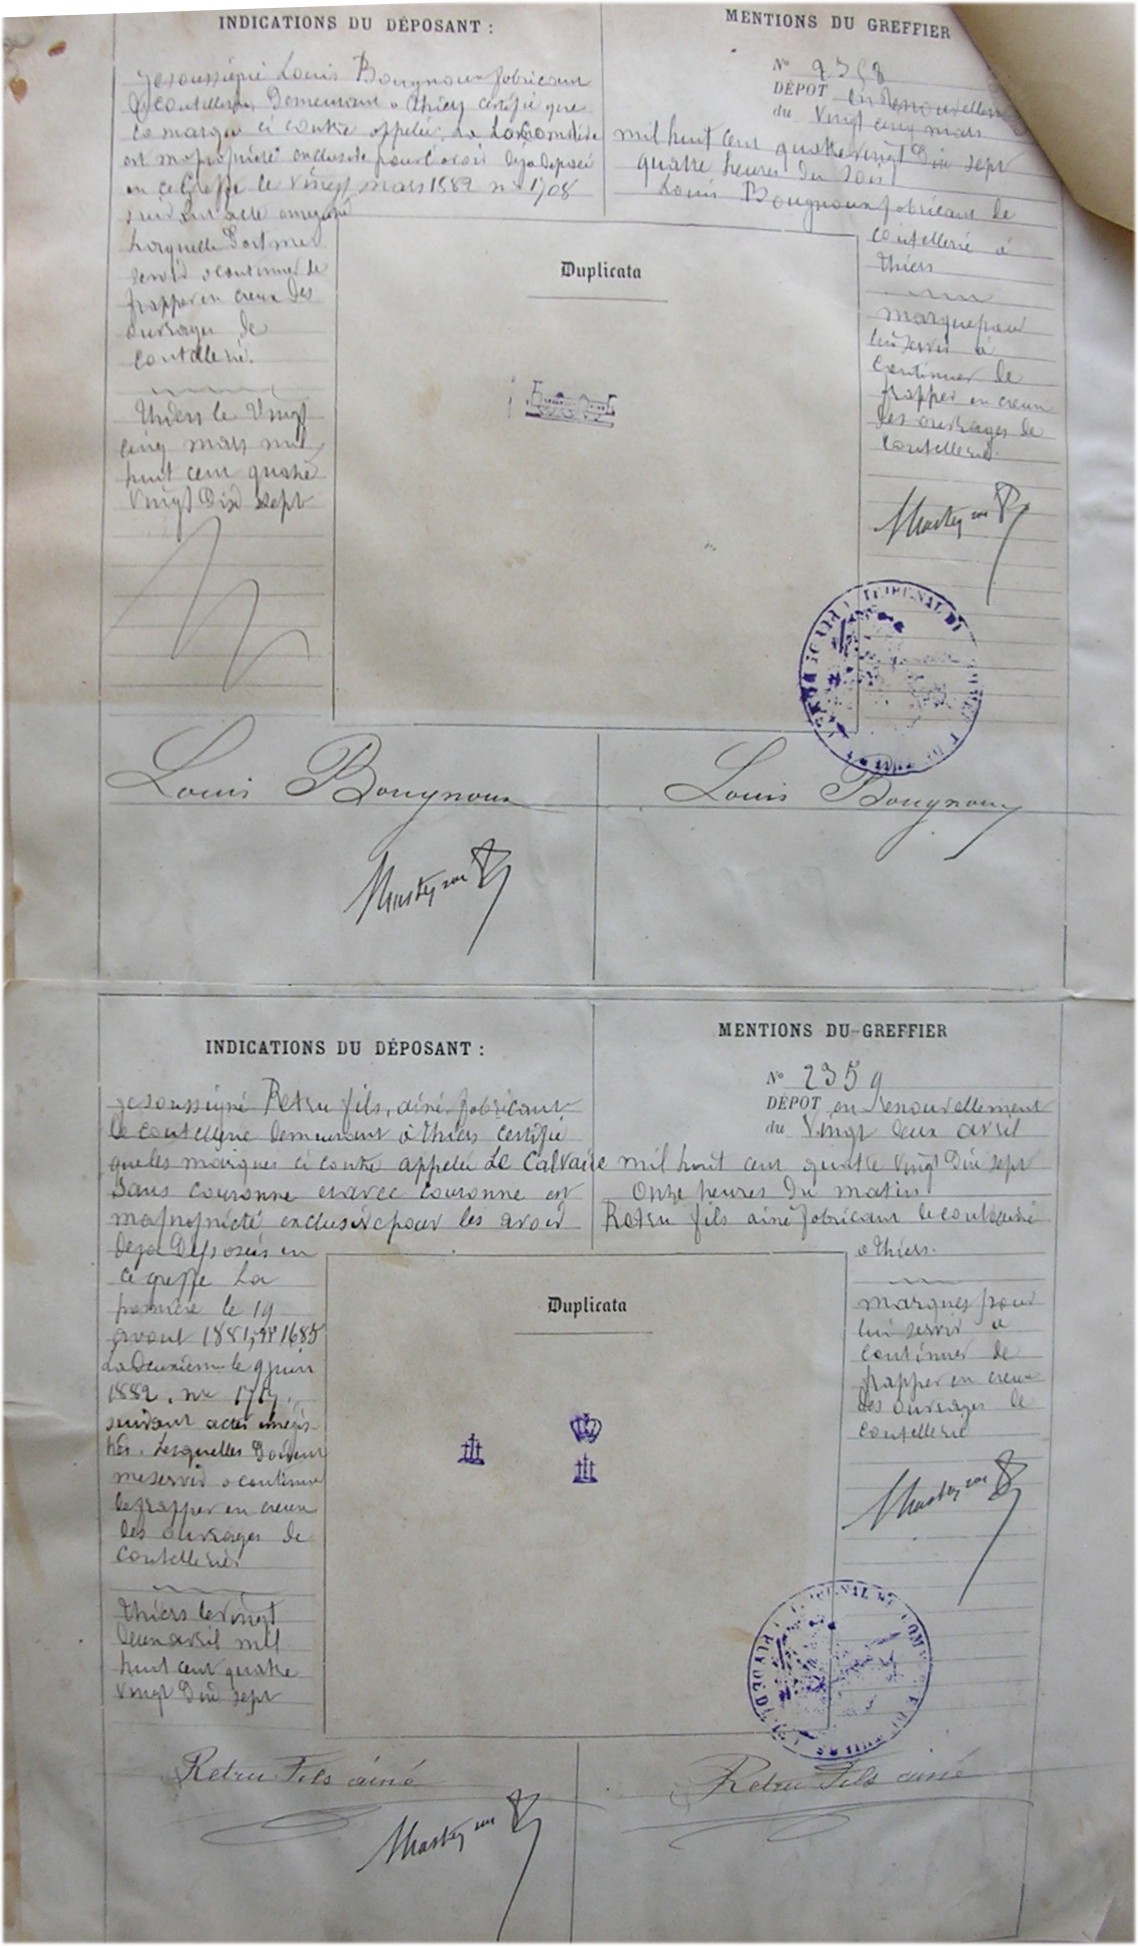 INDICATIONS DU DÉPOSANT :
je soussigné Louis Bougnoux fabricant
de coutellerie, Demeurant à Thiers certifie que
la marque ci contre appelée La Locomotive
est ma propriété exclusive pour l'avoir déjà deposée
en ce Greffe le vingt mars 1882 no 1708
suivant acte enregistré
Laquelle Doit me
servir à continuer de
frapper en creux Des
ouvrages de
coutellerie.
Thiers le Vingt
cinq mars mil
huit cent quatre
Vingt Dix sept
MENTIONS DU GREFFIER
No 2358
DÉPOT en Renouvellement
du Vingt cinq mars
mil huit cent quatre vingt Dix sept
quatre heures Du soir
Louis Bougnoux fabricant de
coutellerie à
Thiers
marque pour
lui servir à
Continuer de
frapper en creux
des ouvrages de
coutellerie.
Duplicata
Louis Bougnoux
Louis Bougnoux
INDICATIONS DU DÉPOSANT :
je soussigné Retru fils, ainé fabricant
de coutellerie demeurant à Thiers certifie
que les marques ci contre appelée Le Calvaire
Sans couronne et avec couronne est
ma propriété exclusive pour les avoir
deja Déposées en
ce greffe La
première le 19
avout 1881, no 1685
La Deuxième le 9 juin
1882, no 1719,
suivant actes enregis-
trés. Lesquelles Doivent
me servir à continuer
de frapper en creux
des ouvrages de
coutellerie
Thiers le Vingt
deux avril mil
huit cent quatre
Vingt Dix sept
MENTIONS DU GREFFIER
No 2359
DÉPOT en Renouvellement
du Vingt deux avril
mil huit cent quatre vingt Dix sept
Onze heures Du matin
Retru fils ainé fabricant de coutellerie
à Thiers.
marques pour
lui servir à
continuer de
frapper en creux
des ouvrages de
coutellerie
Duplicata
Retru Fils ainé
Retru Fils ainé